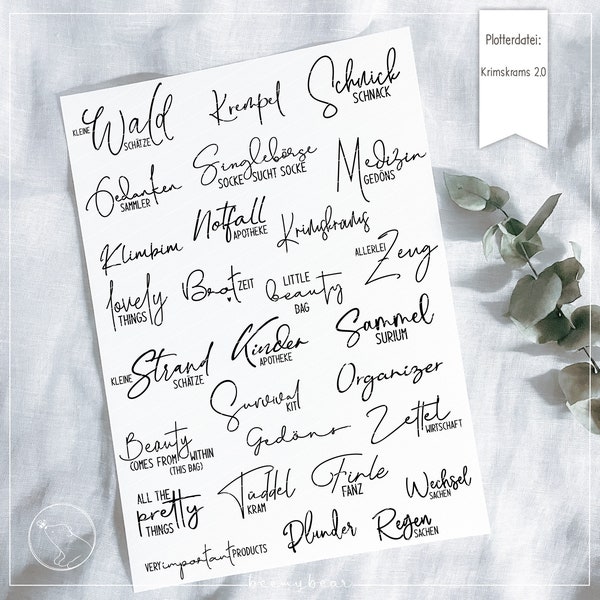 Plotterdatei:
Krimskrams 2.0
KLEINE Wald SCHÄTZE
Krempel
Schnick SCHNACK
Gedanken SAMMLER
Singlebörse
SOCKE SUCHT SOCKE
Medizin GEDÖNS
Klimbim
Notfall APOTHEKE
Krimskrams
ALLERLEI Zeug
lovely THINGS
Boot ZEIT
LITTLE
beauty
BAG
KLEINE Strand SCHÄTZE
Kinder APOTHEKE
Sammel SURIUM
Survival KIT
Organizer
Beauty
COMES FROM WITHIN
(THIS BAG)
Gedöns
Zettel WIRTSCHAFT
ALL THE
pretty
THINGS
Tüddel KRAM
Firle FANZ
Wechsel SACHEN
VERY important PRODUCTS
Plunder
Regen SACHEN
beemybear